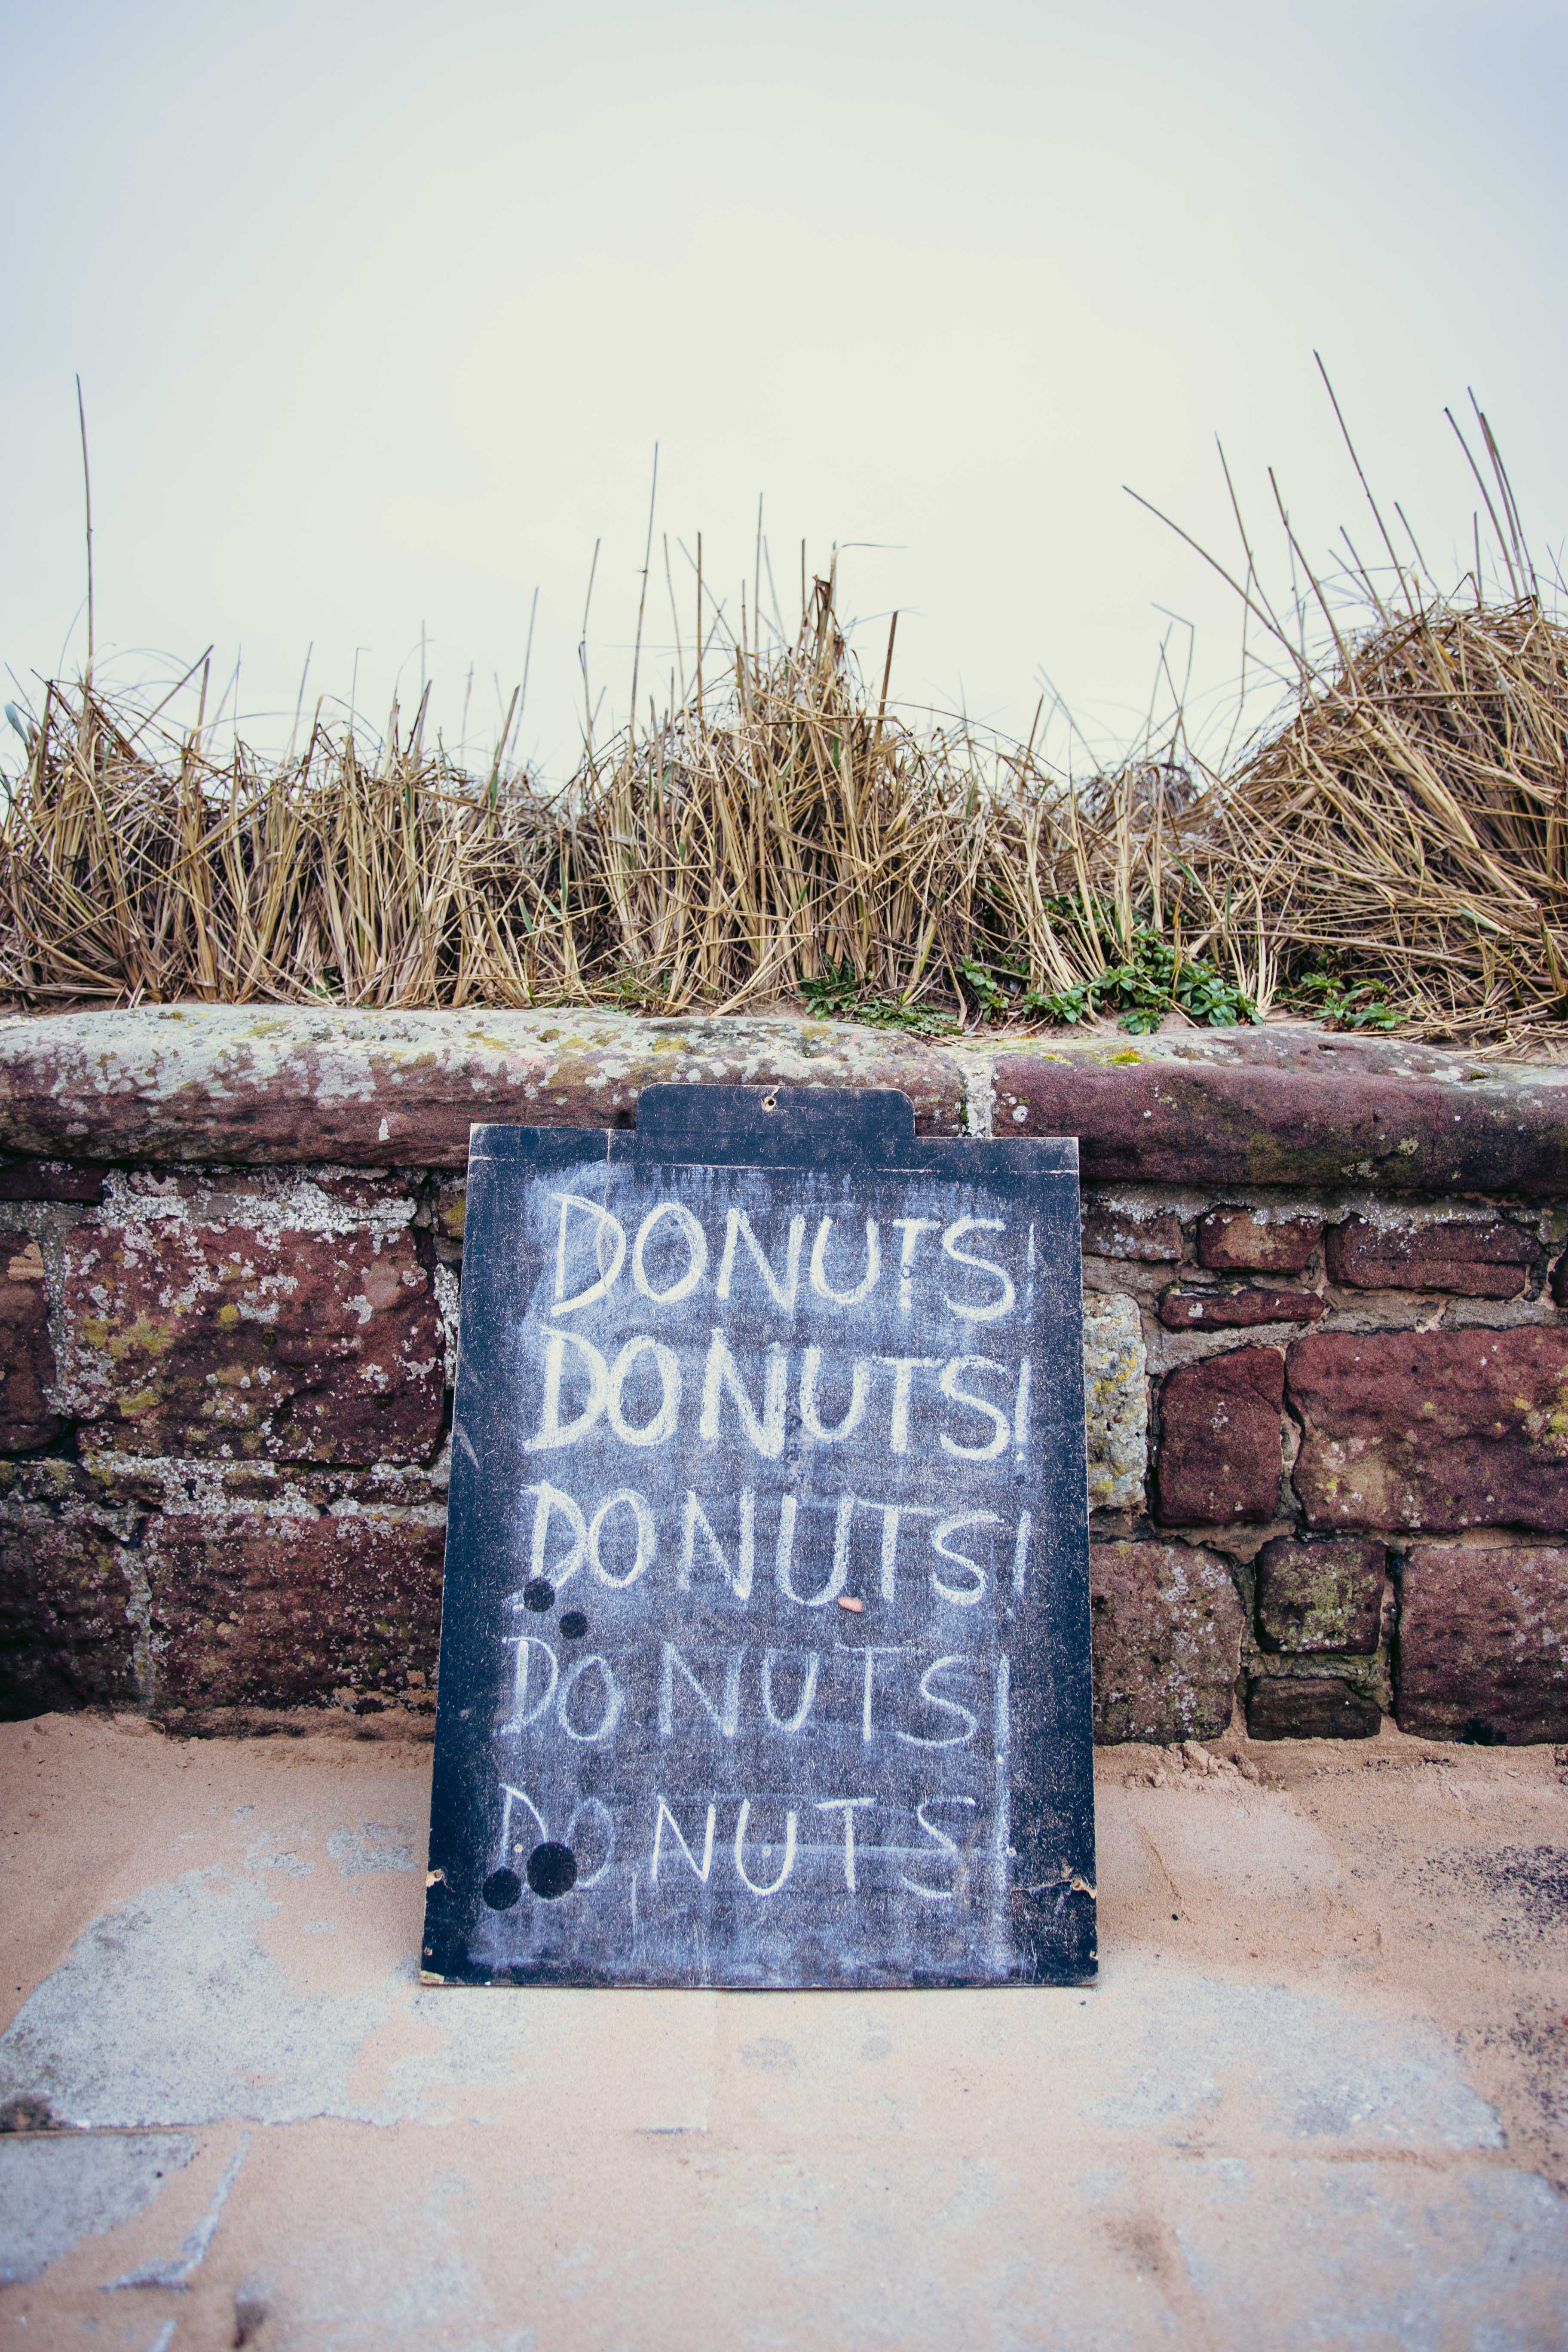 DONUTS!
DONUTS!
DONUTS!
DONUTS!
DONUTS